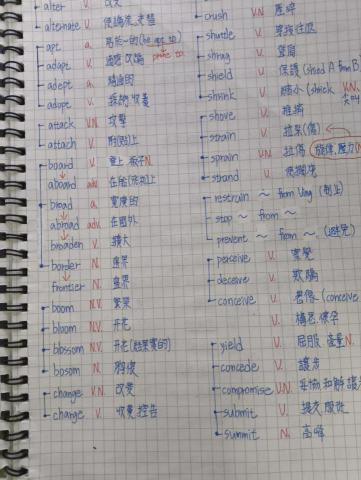 alter V.
alternate V. 使輪流,交替
apt a. 易於~的(be apt to)
adapt V. 適應 改編 prone to
adept a. 精通的
adopt V. 採納 收養
attack V.N. 攻擊
attach V. 附(貼)上
board V. 登上 板子 N.
aboard adv. 在船(飛機)上
broad a. 寬廣的
abroad adv. 在國外
broaden V. 擴大
border N. 邊界
frontier N. 邊界
boom N.V. 繁榮
bloom N.V. 開花
blossom N.V. 開花(結果實的)
bosom N. 胸懷
change V.N. 改變
charge V. 收費,控告
crush V.N. 壓碎
shuttle V. 穿梭往返
shrug V. 聳肩
shield V. 保護 (shield A from B)
shrink V. 縮小 (shrink V.N.
shove V. 推擠
strain V. 拉緊(傷)
sprain V.N. 扭傷
strand V. 使擱淺
restrain ~ from Ving (制止)
stop ~ from ~
prevent ~ from ~ (避免)
perceive V. 察覺
deceive V. 欺騙
conceive V. 想像 (conceive
V. 構思 懷孕
yield V. 屈服 產量 N.
concede V. 讓步
compromise V.N. 妥協 和解 讓步
submit V. 提交 服從
summit N. 高峰